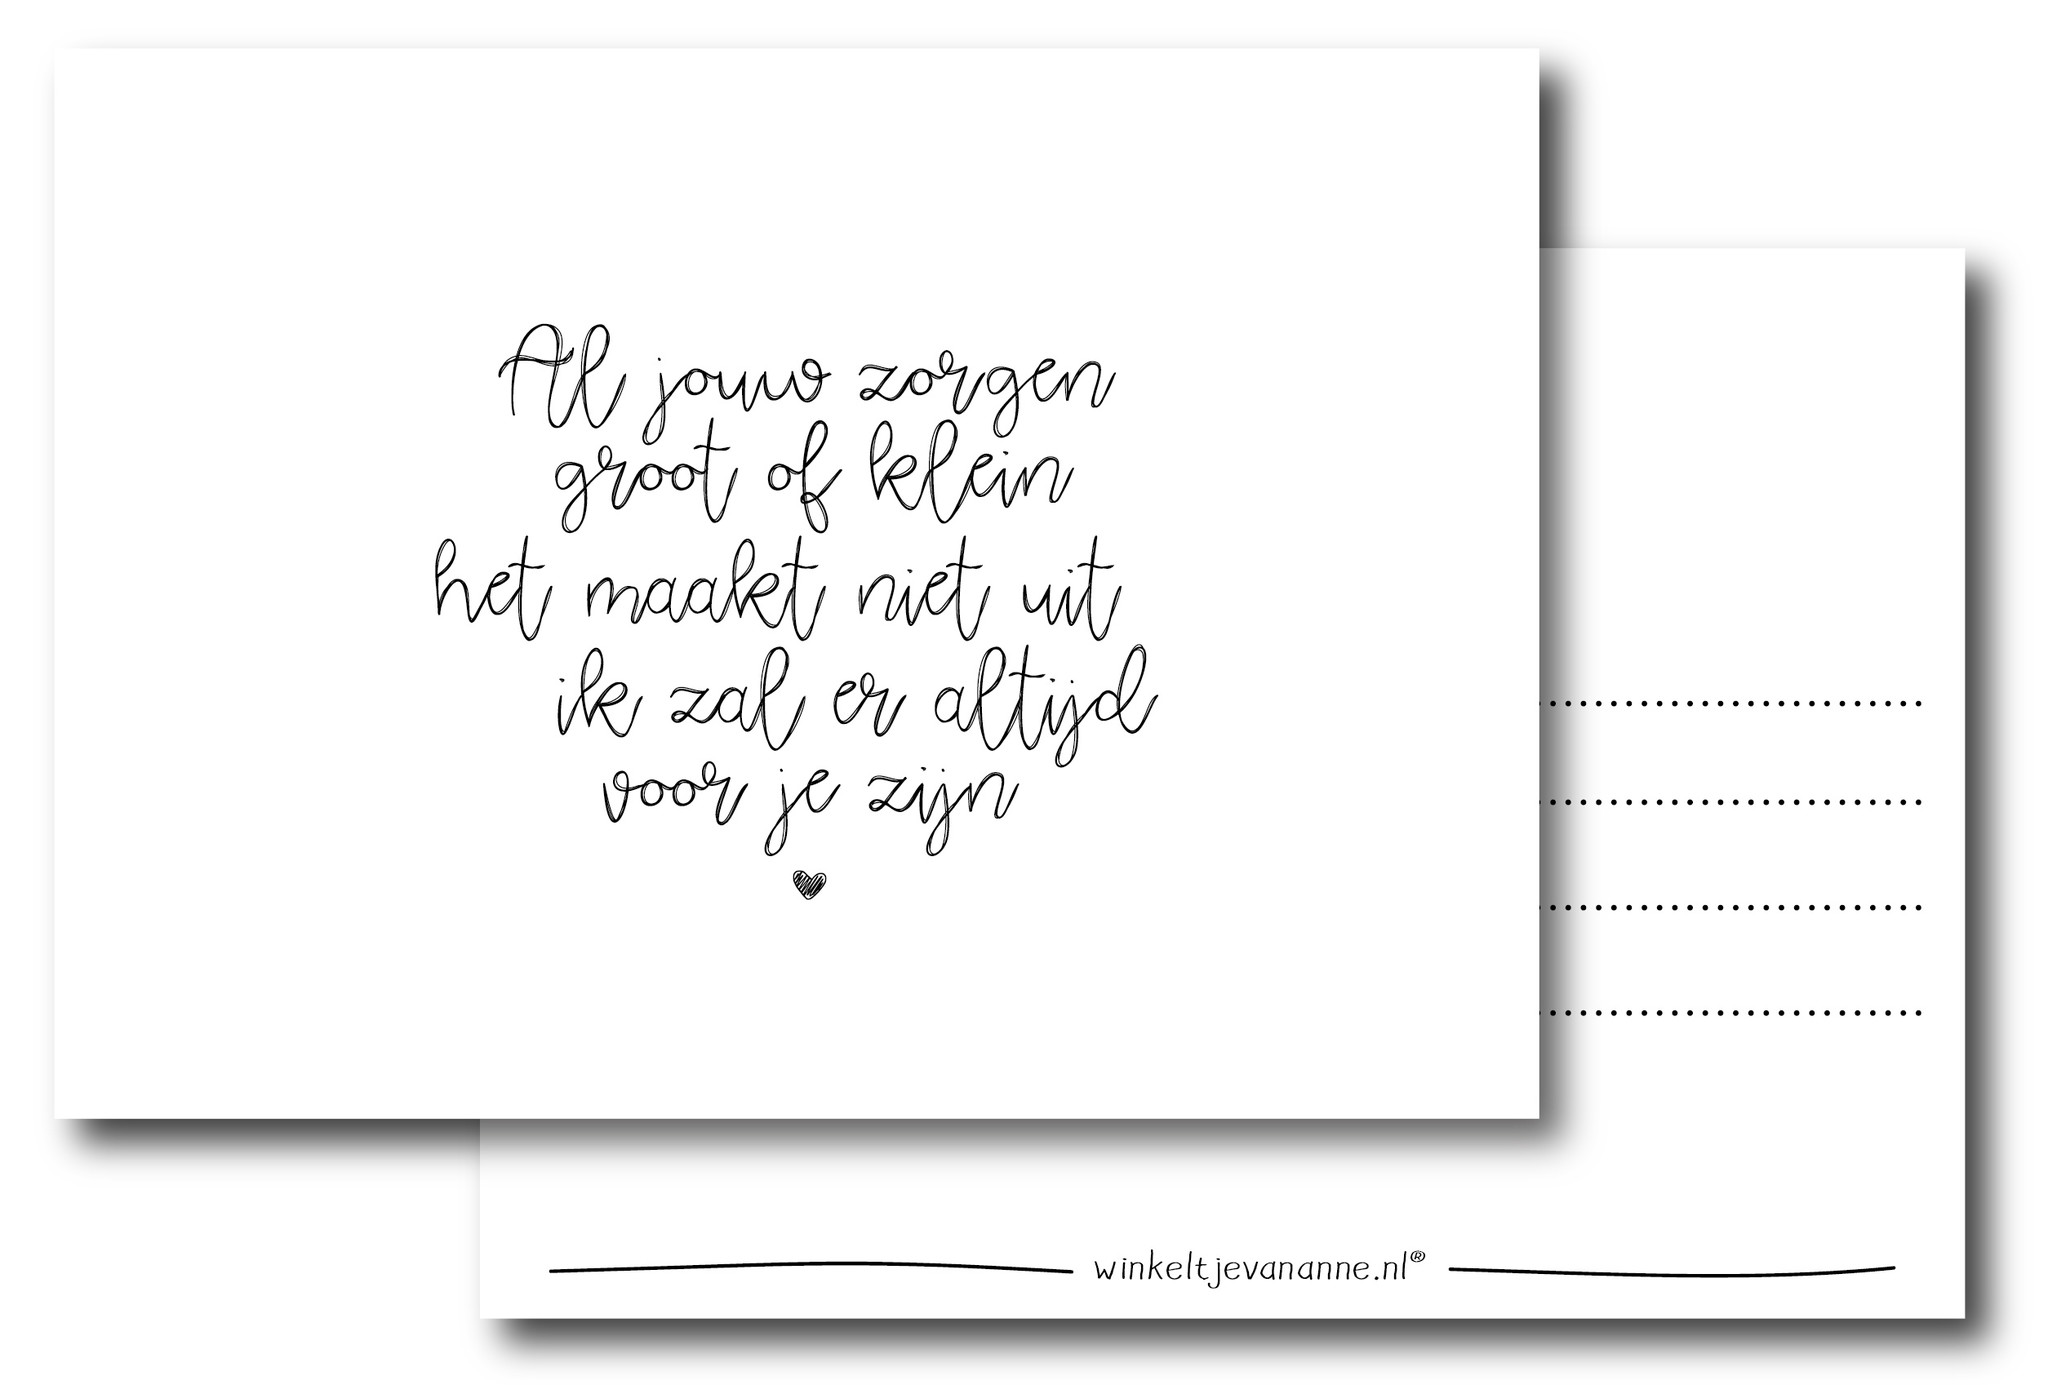 Al jouw zorgen
groot of klein
het maakt niet uit
ik zal er altijd
voor je zijn
winkeltjevananne.nl®